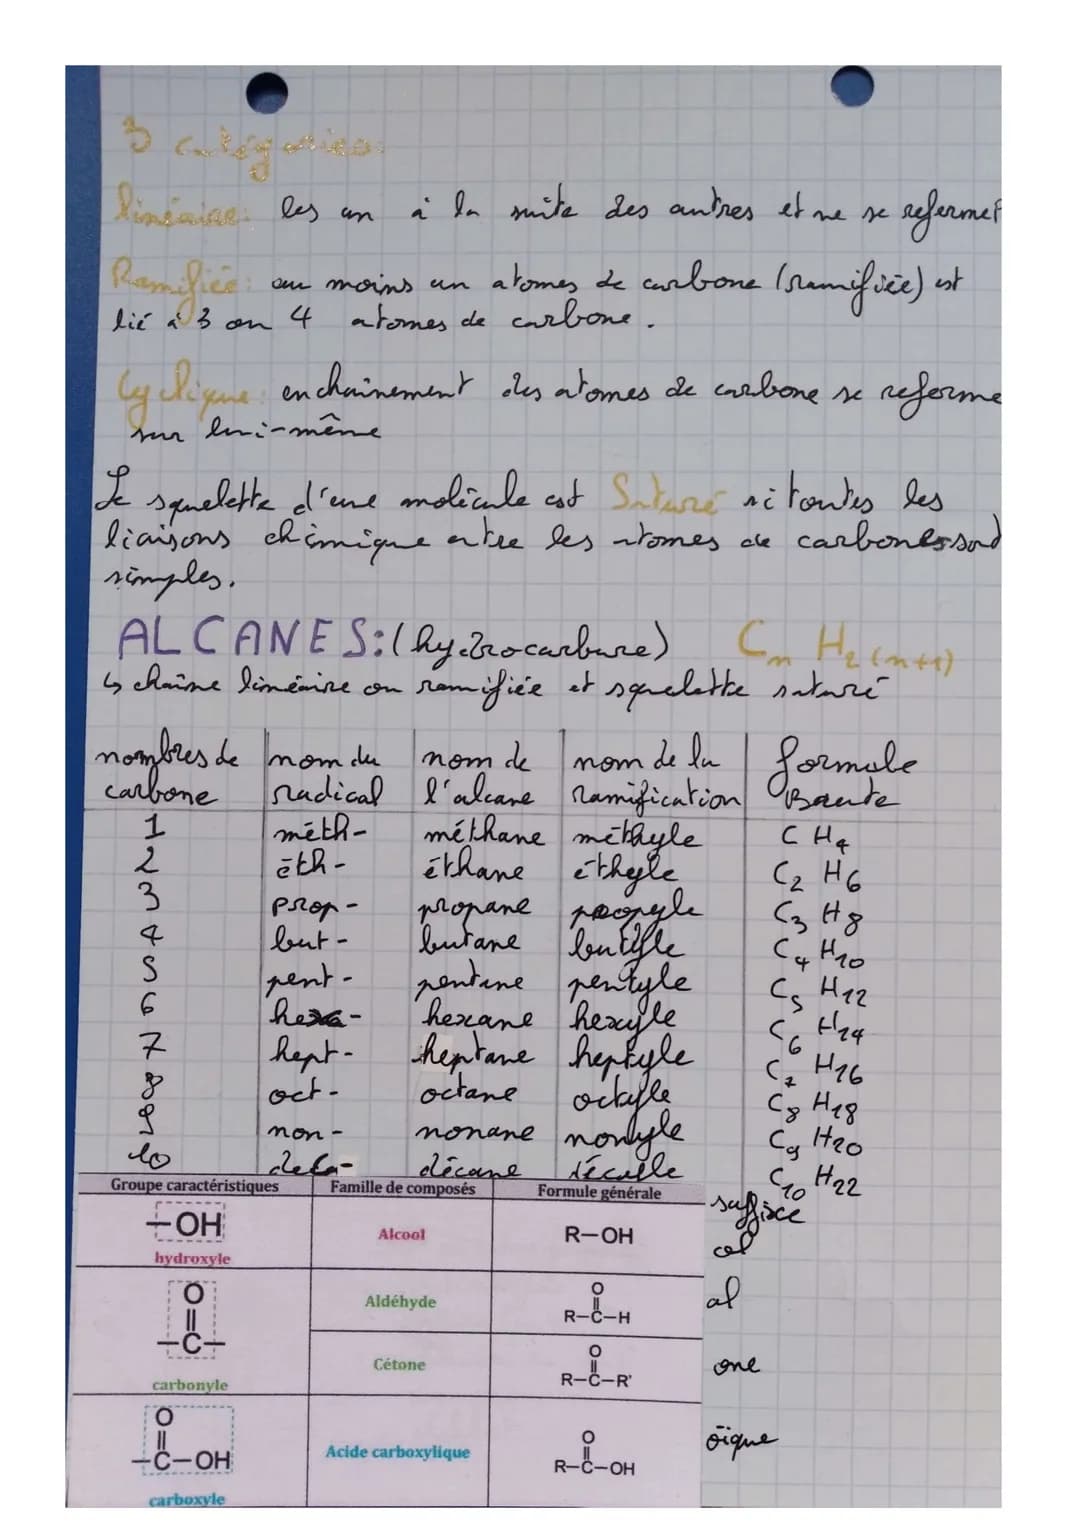 3 catégories:
linéaire: les un à la suite des autres et ne se refermet
Ramifiée: au moins un atomes de carbone (ramifiée) est
lié à 3 ou 4 atomes de carbone.
Cyclique: enchaînement des atomes de carbone se referme
sur lui-même
Le squelette d'une molécule est Saturé si toutes les
liaisons chimique entre les atomes de carbones sont
simples.
ALCANES: (hydrocarbure) CnH2(n+1)
↳ chaîne linéaire ou ramifiée et squelette saturé
nombres de | nom du | nom de | nom de la | formule
carbone | radical | l'alcane | ramification | Brute
1 méth- méthane méthyle CH4
2 éth- éthane éthyle C2H6
3 prop- propane propyle C3H8
4 but- butane butyle C4H10
5 pent- pentane pentyle C5H12
6 hexa- hexane hexyle C6H14
7 hept- heptane heptyle C7H16
8 oct- octane octyle C8H18
9 non- nonane nonyle C9H20
10 deca- décane C10H22
Groupe caractéristiques Famille de composés Formule générale suffixe
—OH Alcool R—OH ol
hydroxyle
O
||
—C—
carbonyle
Aldéhyde
O
||
R—C—H
al
Cétone
O
||
R—C—R'
one
O
||
—C—OH
carboxyle
Acide carboxylique
O
||
R—C—OH
oïque